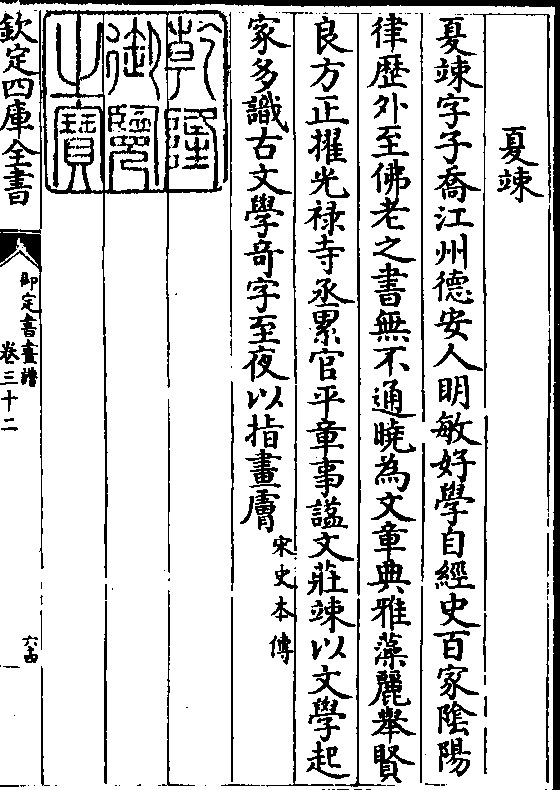 夏竦
夏竦字子喬江州德安人明敏好學自經史百家隂陽
律歷外至佛老之書無不通曉為文章典雅藻麗舉賢
良方正擢光禄寺丞累官平章事諡文莊竦以文學起
家多識古文學奇字至夜以指畫膚宋史本傳
乾隆
御覽
之寶
欽定四庫全書
御定書畫譜
卷三十二
六十四